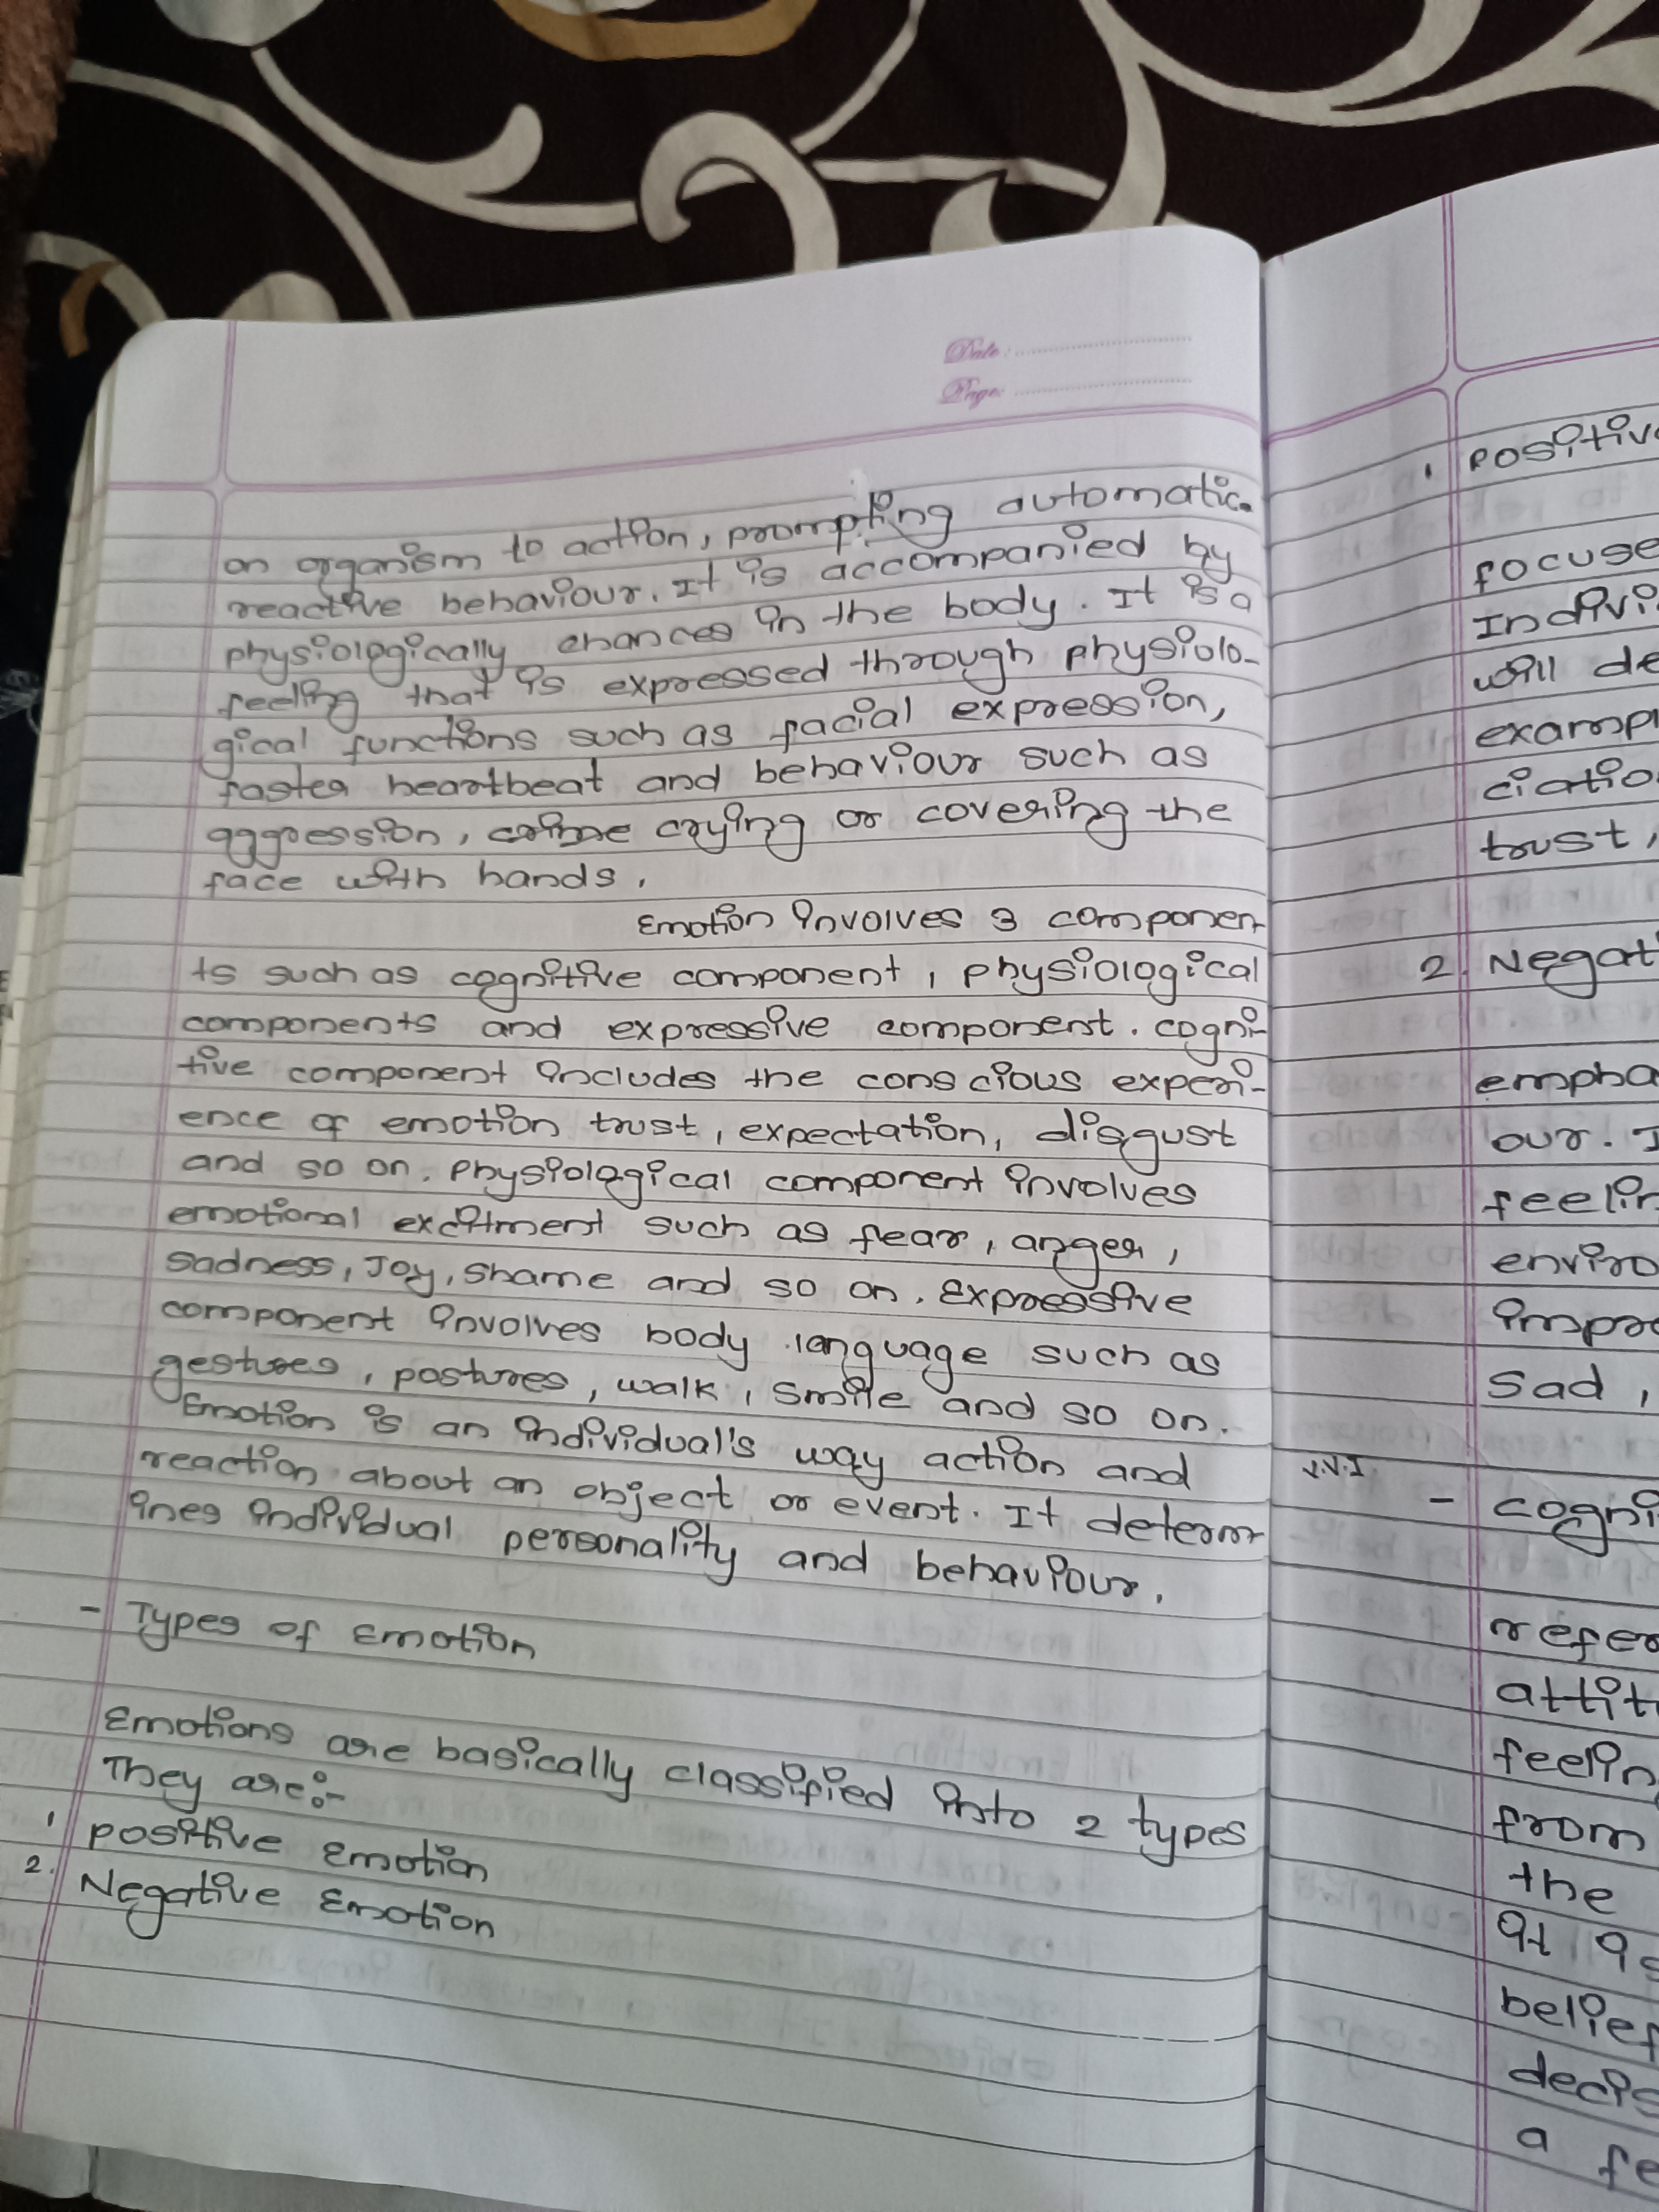 Date:
Page:
an organism to action, prompting automatic
reactive behaviour. It is accompanied by
physiologically chances in the body. It is a
feeling that is expressed through physiolo-
gical functions such as facial expression,
faster heartbeat and behaviour such as
aggression, crying or covering the
face with hands.
Emotion involves 3 componen-
ts such as cognitive component, physiological
components and expressive component. cogni-
tive component includes the conscious experi-
ence of emotion trust, expectation, disgust
and so on. Physiological component involves
emotional excitment such as fear, anger,
sadness, Joy, shame and so on. Expressive
component involves body language such as
gestures, postures, walk, smile and so on.
Emotion is an individual's way action and
reaction about an object or event. It determ-
ines individual personality and behaviour.
- Types of Emotion
Emotions are basically classified into 2 types
They are:-
1 Positive Emotion
2. Negative Emotion
1. Positiv
focuse
Indivi
will de
exampl
ciatio
trust,
2. Negat
empha
our. I
feelin
enviro
impro
sad,
V.V.I
- cogni
refer
attit
feelin
from
the
it is
belief
decis
a fe